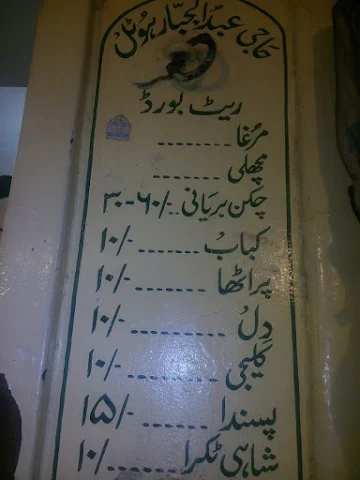 حاجی عبدالجبّار ہوٹل
ریٹ بورڈ
مرُغا --------
مچھلی -------
چکن بریانی ۔۔ ۶۰/-۳۰
کبابُ ------- ۱۰/-
پراٹھا -------- ۱۰/-
دِلُ --------- ۱۰/-
کلیجی -------- ۱۰/-
پسندا ------ ۱۵/-
شاہی ٹکرا ------ ۱۰/-